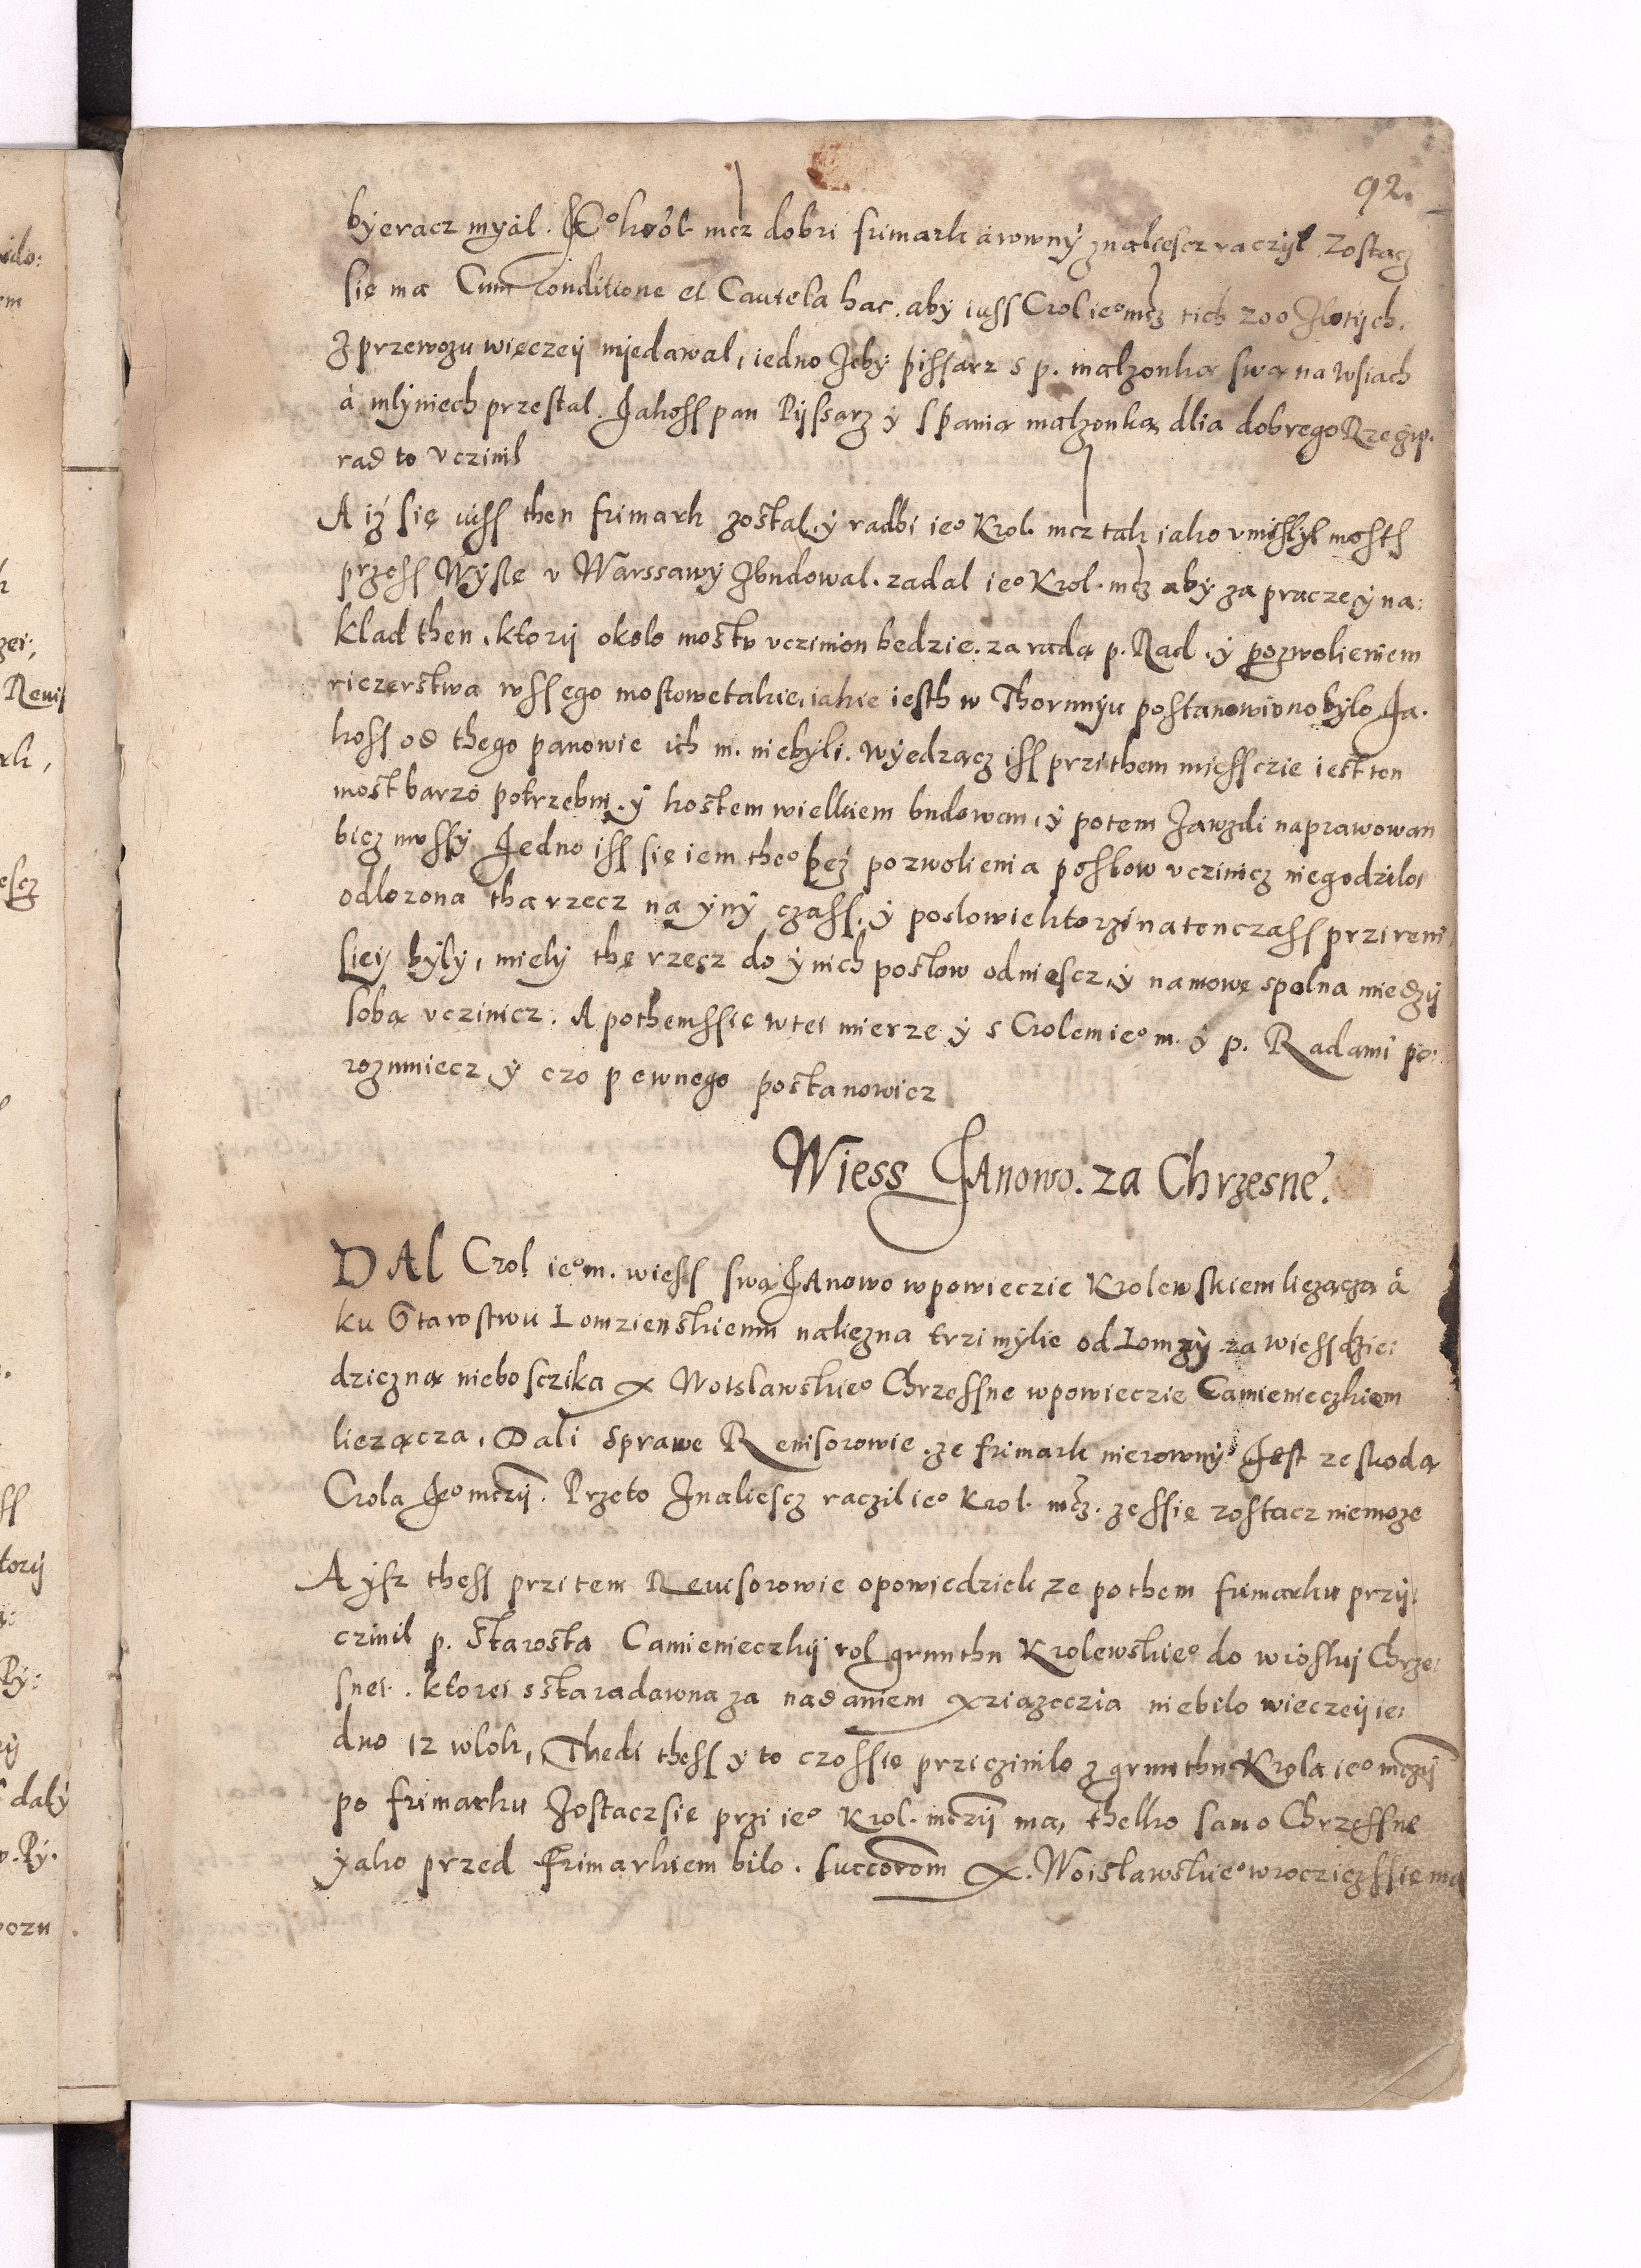 92.
byeracz myal. Je° król. mcz dobri frimark a rowny znaliescz raczył Zostacz
się ma Cum conditione et Cautela hac. aby iuss Crol ie° mcz tich 200 złotych.
z przewozu więczey niedawal, iedno żeby pissarz s p. malzonką swą na wsiach
á mlyniech przestal. Jakoss pan Pyssarz y s panią malzonką dlia dobrego Rzeczyp.
rad to vczinił
A iż się iuss then frimark zostal, y radbi ie° Krol. mcz tak iako vmislyl mosth
przess Wysłe v Warssawy zbudowal. zadal ie° Krol. mcz aby za pracze y na:
klad then, ktory około mostu vczinion bedzie. za radą p. Rad. y pozwolieniem
riczerstwa wssego mostowe takie, iakie iesth w Thorunyu postanowiono bylo Ja.
koss od thego panowie ich m. niebyli. wyedzącz iss przi them miesczie iest ten
most barzo potrzebni. y kostem wielkiem budowan, y potem zawzdi naprawowan
bicz mussy Jedno iss się iem the° beż pozwolienia posłow vczinicz niegodzilo,
odlozona tha rzecz na yny czass. y poslowie ktorzi na ten czass przi rewi
siey byly, miely thę rzecz do ynich posłow odniescz, y namowę spolna miedzy
sobą vczinicz. A pothem ssie w tei mierze y s Crolem ie° m. y p. Radami po:
rozumiecz y czo pewnego postanowicz
Wiess Janowo. za Chrzesne.
DAl Crol ie° m. wiess swą Janowo w powieczie Krolewskiem liezączą á
ku Starostwu Lomzienskiemu nalezna trzi mylie od Lomzy za wiess dzie:
dziczną nieboscika X Woislawskie° Chrzessne w powieczie Camienieczkiem
liezącza. Dali sprawe Rewisorowie. ze frimark nierowny Jest ze skodą
Crola Je° mczy. Przeto znaliescz raczil ie° Krol. mcz. ze ssię zostacz niemoze
A ysz thess przi tem Rewisorowie opowiedzieli ze pothem frimarku przy:
czinil p. Starosta Camienieczky rol gruntu Krolewskie° do wioski Chrze:
snei. ktorei s staradawna za nadaniem xziązęczia niebilo wieczey ie:
dno 12 wlok, Thedi thess y to czo ssie prziczinilo z grunthu Krola ie° mczy
po frimarku zostacz sie przi ie° Krol. mczy ma, thelko samo Chrzessne
yako przed frimarkiem bilo. succorom X. Woislawskie° wrocziczssie ma